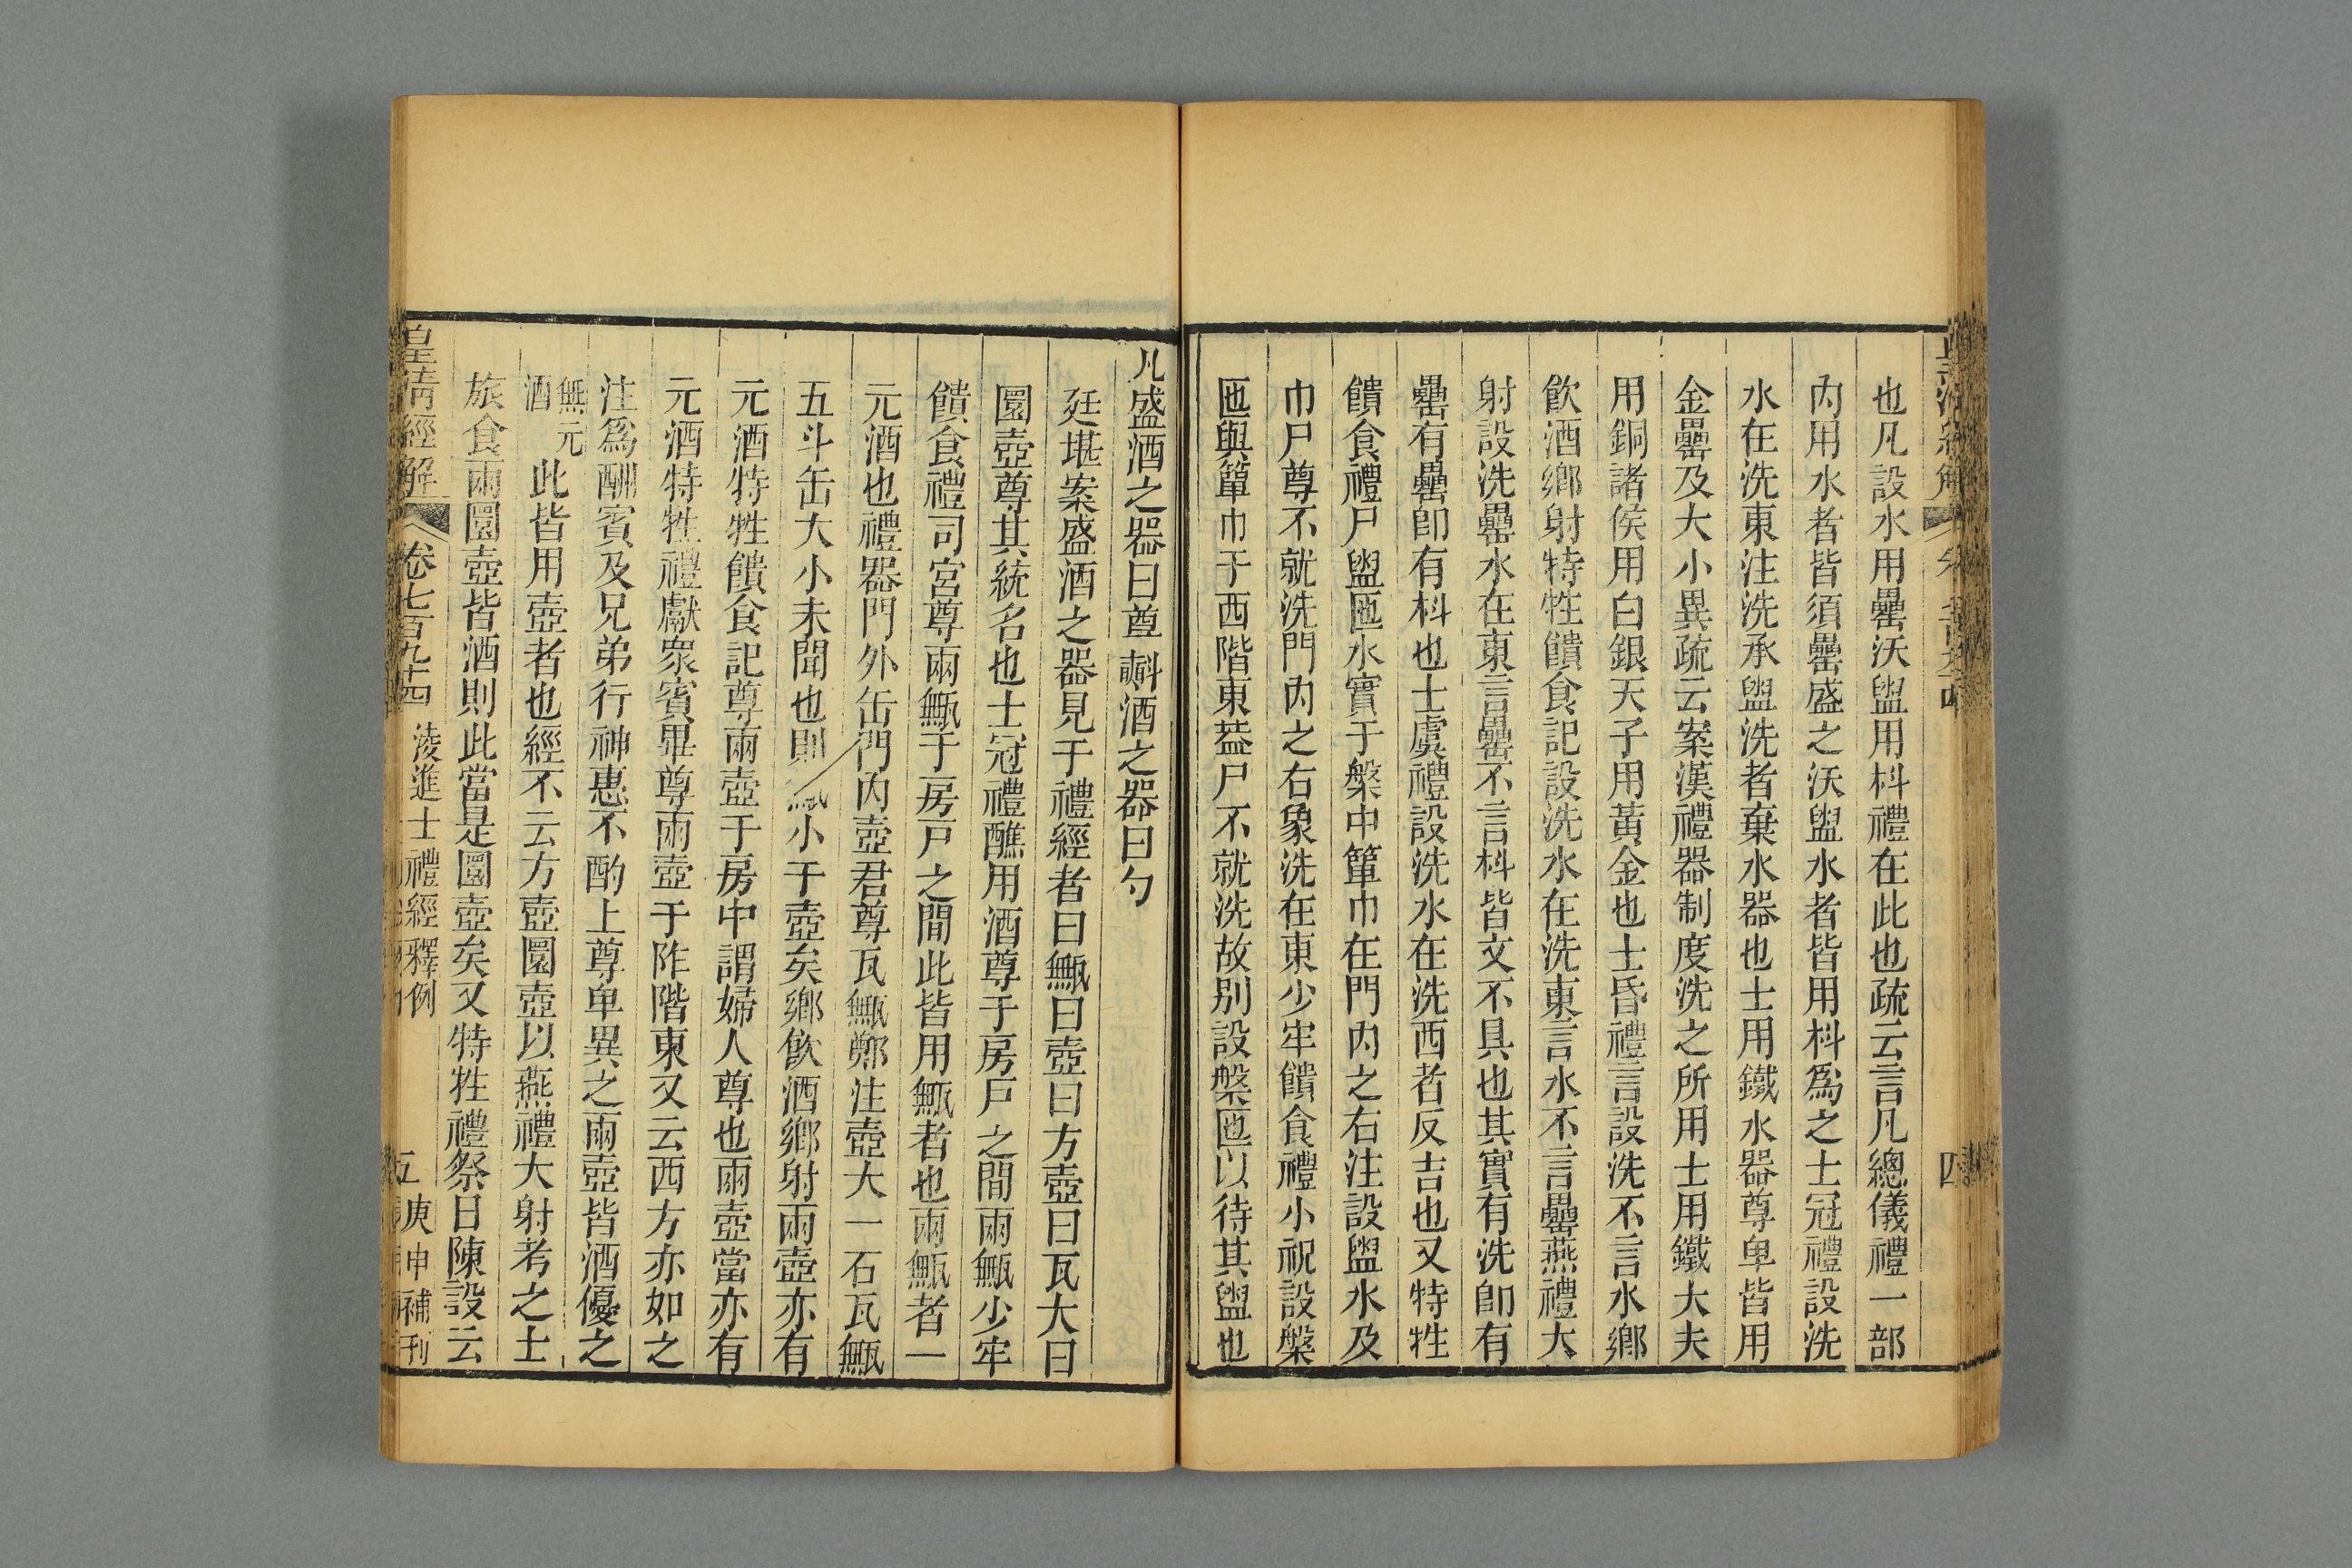 也凡設水用罍沃盥用枓禮在此也疏云言凡總儀禮一部
內用水者皆須罍盛之沃盥水者皆用枓爲之士冠禮設洗
水在洗東注洗承盥洗者棄水器也士用鐵水器尊卑皆用
金罍及大小異疏云案漢禮器制度洗之所用士用鐵大夫
用銅諸侯用白銀天子用黃金也士昏禮言設洗不言水鄉
飲酒鄉射特牲饋食記設洗水在洗東言水不言罍燕禮大
射設洗罍水在東言罍不言枓皆文不具也其實有洗卽有
罍有罍卽有枓也士虞禮設洗水在洗西者反吉也又特牲
饋食禮尸盥匜水實于槃中簞巾在門內之右注設盥水及
巾尸尊不就洗門內之右象洗在東少牢饋食禮小祝設槃
匜與簞巾于西階東葢尸不就洗故別設槃匜以待其盥也
凡盛酒之器曰尊㪺酒之器曰勺
廷堪案盛酒之器見于禮經者曰甒曰壺曰方壺曰瓦大曰
圜壺尊其統名也士冠禮醮用酒尊于房戶之間兩甒少牢
饋食禮司宮尊兩甒于房戶之間此皆用甒者也兩甒者一
元酒也禮器門外缶門內壺君尊瓦甒鄭注壺大一石瓦甒
五斗缶大小未聞也則甒小于壺矣鄉飲酒鄉射兩壺亦有
元酒特牲饋食記尊兩壺于房中謂婦人尊也兩壺當亦有
元酒特牲禮獻眾賓畢尊兩壺于阼階東又云西方亦如之
注爲酬賓及兄弟行神惠不酌上尊卑異之兩壺皆酒優之
無元酒此皆用壺者也經不云方壺圜壺以燕禮大射考之士
旅食兩圜壺皆酒則此當是圜壺矣又特牲禮祭日陳設云
皇清經解 卷七百九十四 淩進士禮經釋例 五 庚申補刊